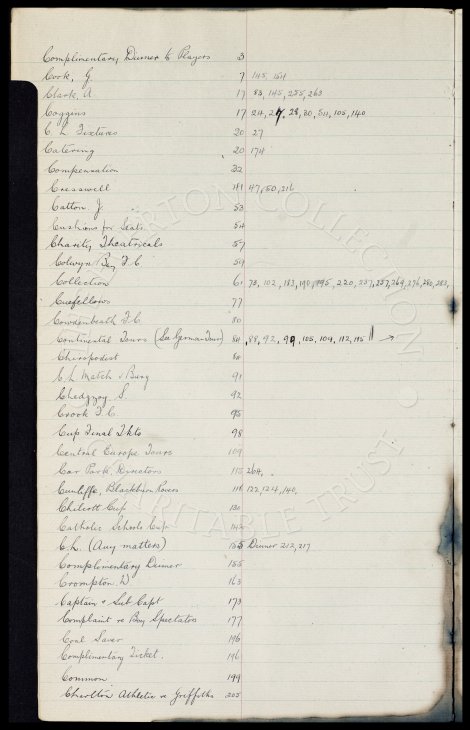 Complimentary Dinner to Players 3
Cook, G. 7 145, 164
Clark, A 17 83, 145, 255, 263
Coggins 17 24, 27, 28, 30, 54, 105, 140
C. L. Fixtures 20 27
Catering 20 174
Compensation 32
Cresswell 41 47, 50, 216
Catton J. 53
Cushions for Seats 54
Charity Theatricals 57
Colwyn Bay F.C 59
Collection 61 78, 102, 183, 190, 195, 220, 237, 257, 269, 276, 280, 283,
Cuefellows 77
Cowdenbeath F.C. 80
Continental Tours (See German Tour) 84 88, 92, 99, 105, 109, 112, 115
Chiropodist 84
C.L Match v Bury 91
Chedgzoy S 92
Crook F.C. 95
Cup Final Tkts 98
Central Europe Tours 109
Car Park Directors 115 264,
Cunliffe, Blackburn Rovers 118 122, 124, 140,
Chilcott Cup 130
Catholic Schools Cup 142
C.L. (Any matters) 155 Dinner 212, 217
Complimentary Dinner 155
Crompton. W 163
Captain & Sub Capt 173
Complaint re Boy Spectators 177
Coal Saver 196
Complimentary Ticket. 196
Common 199
Charlton Athletic re Griffiths 205
EVERTON COLLECTION
CHARITABLE TRUST